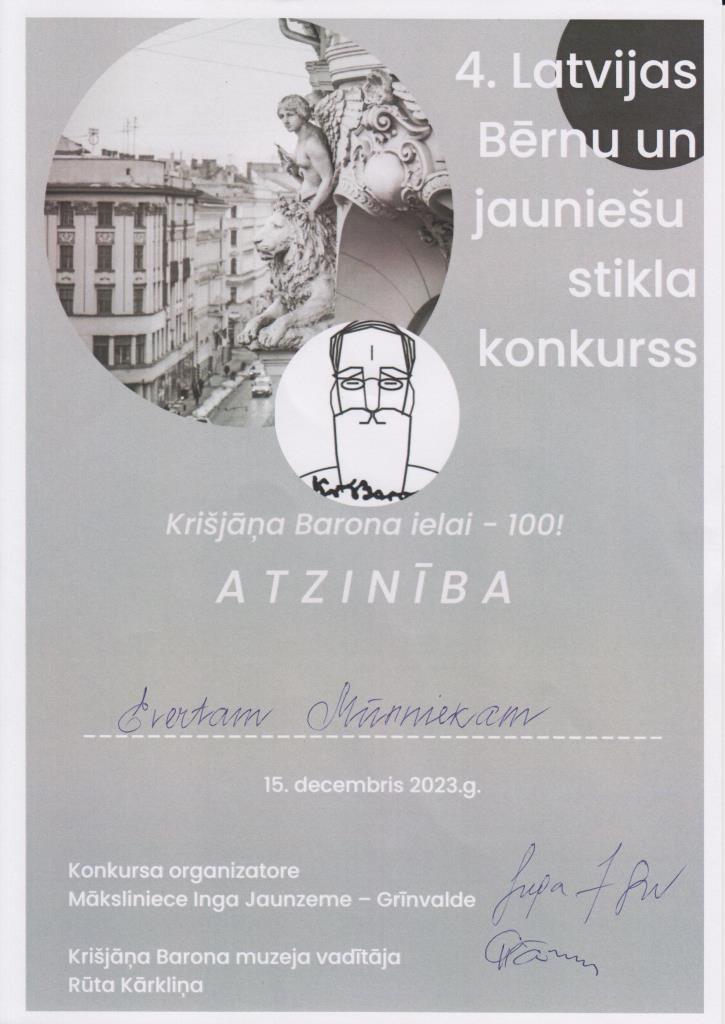 4. Latvijas
Bērnu un
jauniešu
stikla
konkurss
Kr Baro
Krišjāņa Barona ielai - 100!
ATZINĪBA
Evertam Mūrniekam
15. decembris 2023.g.
Konkursa organizatore
Māksliniece Inga Jaunzeme – Grīnvalde
Krišjāņa Barona muzeja vadītāja
Rūta Kārkliņa